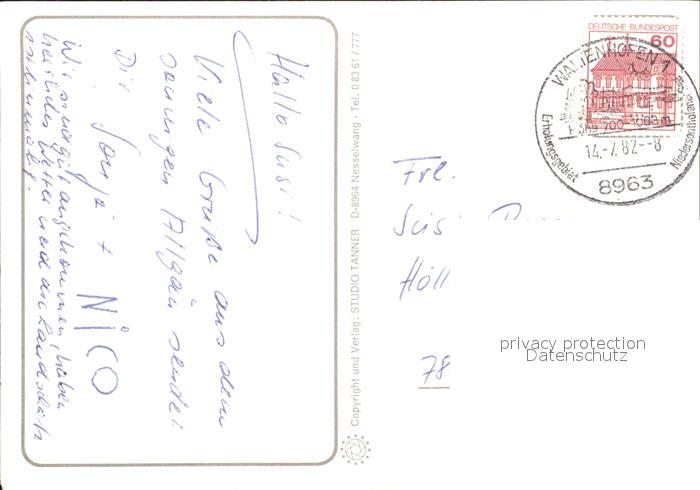 Hallo Susi!
Viele Grüße aus dem
sonnigen Allgäu sendet
Dir Sonja + NiCO
Wir sind gut angekommen, haben
herrliches Wetter und die Landschaft
ist
Copyright und Verlag: STUDIO TANNER D-8964 Nesselwang · Tel. 0 83 61 / 777
DEUTSCHE BUNDESPOST
60
WALTENHOFEN 1
700-1000 m
14.-7.82--8
Erholungsgebiet
8963
Frl.
Susi
Höll
78
privacy protection
Datenschutz